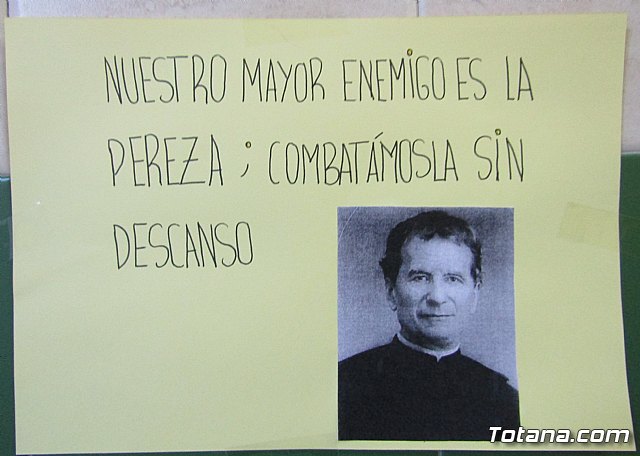 NUESTRO MAYOR ENEMIGO ES LA
PEREZA ; COMBATÁMOSLA SIN
DESCANSO
Totana.com